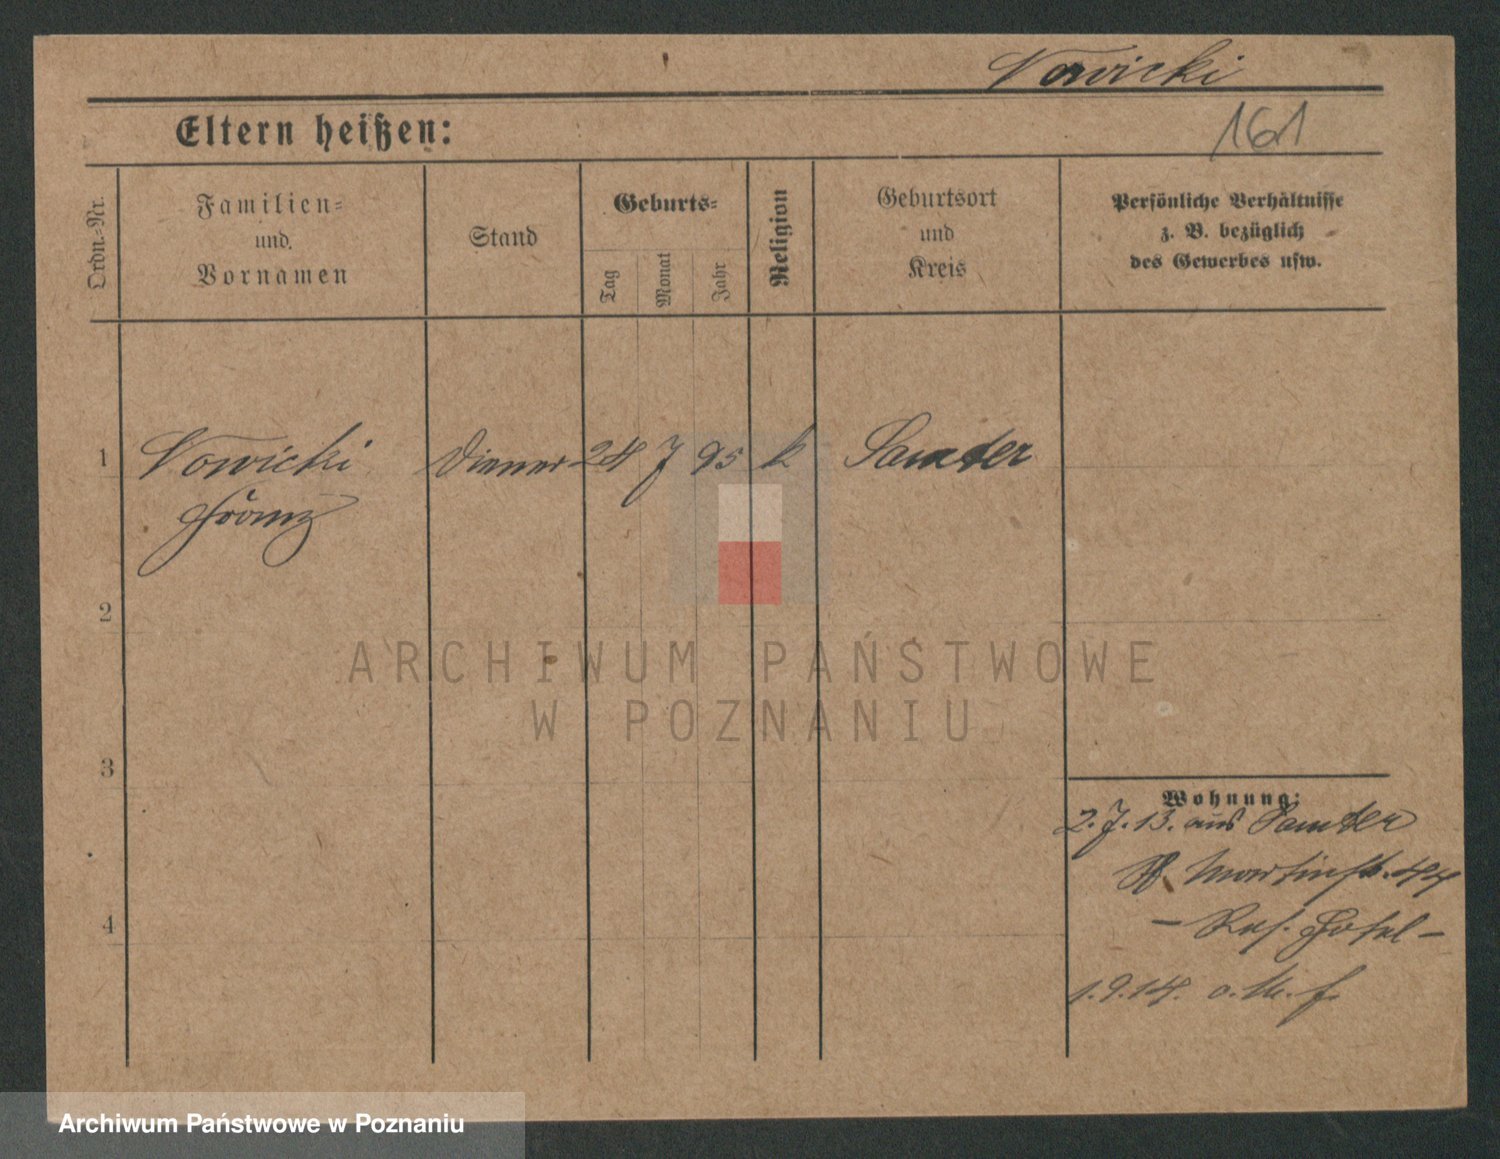 Nowicki
161
Eltern heißen:
Ordn.-Nr.
Familien-
und
Vornamen
Stand
Geburts-
Tag
Monat
Jahr
Religion
Geburtsort
und
Kreis
Persönliche Verhältnisse
z. B. bezüglich
des Gewerbes usw.
1 Nowicki Diener 24 7 95 k Samter
Franz
2
3
4
Wohnung:
2.7.13. aus Samter
St. Martinstr. 44
- Hotel -
1.9.14. o. M. f.
ARCHIWUM PAŃSTWOWE
W POZNANIU
Archiwum Państwowe w Poznaniu